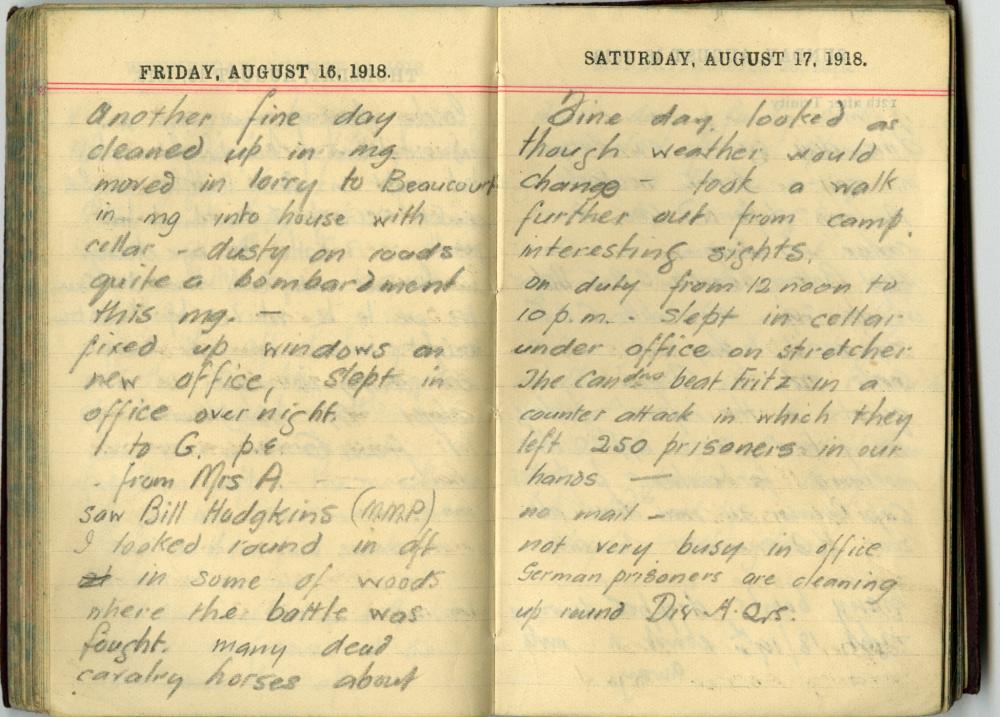 FRIDAY, AUGUST 16, 1918.
Another fine day
cleaned up in mg
moved in lorry to Beaucourt
in mg into house with
cellar - dusty on roads
quite a bombardment
this mg. -
fixed up windows on
new office, slept in
office over night.
1 to G, p.c
. from Mrs A.
saw Bill Hodgkins (M.M.P.)
I looked round in aft
in some of woods
where the battle was
fought. many dead
cavalry horses about
SATURDAY, AUGUST 17, 1918.
Fine day. looked as
though weather would
change - took a walk
further out from camp.
interesting sights.
on duty from 12 noon to
10 p.m. slept in cellar
under office on stretcher
The Candns beat Fritz in a
counter attack in which they
left 250 prisoners in our
hands -
no mail -
not very busy in office
German prisoners are cleaning
up round Div H. Qrs.